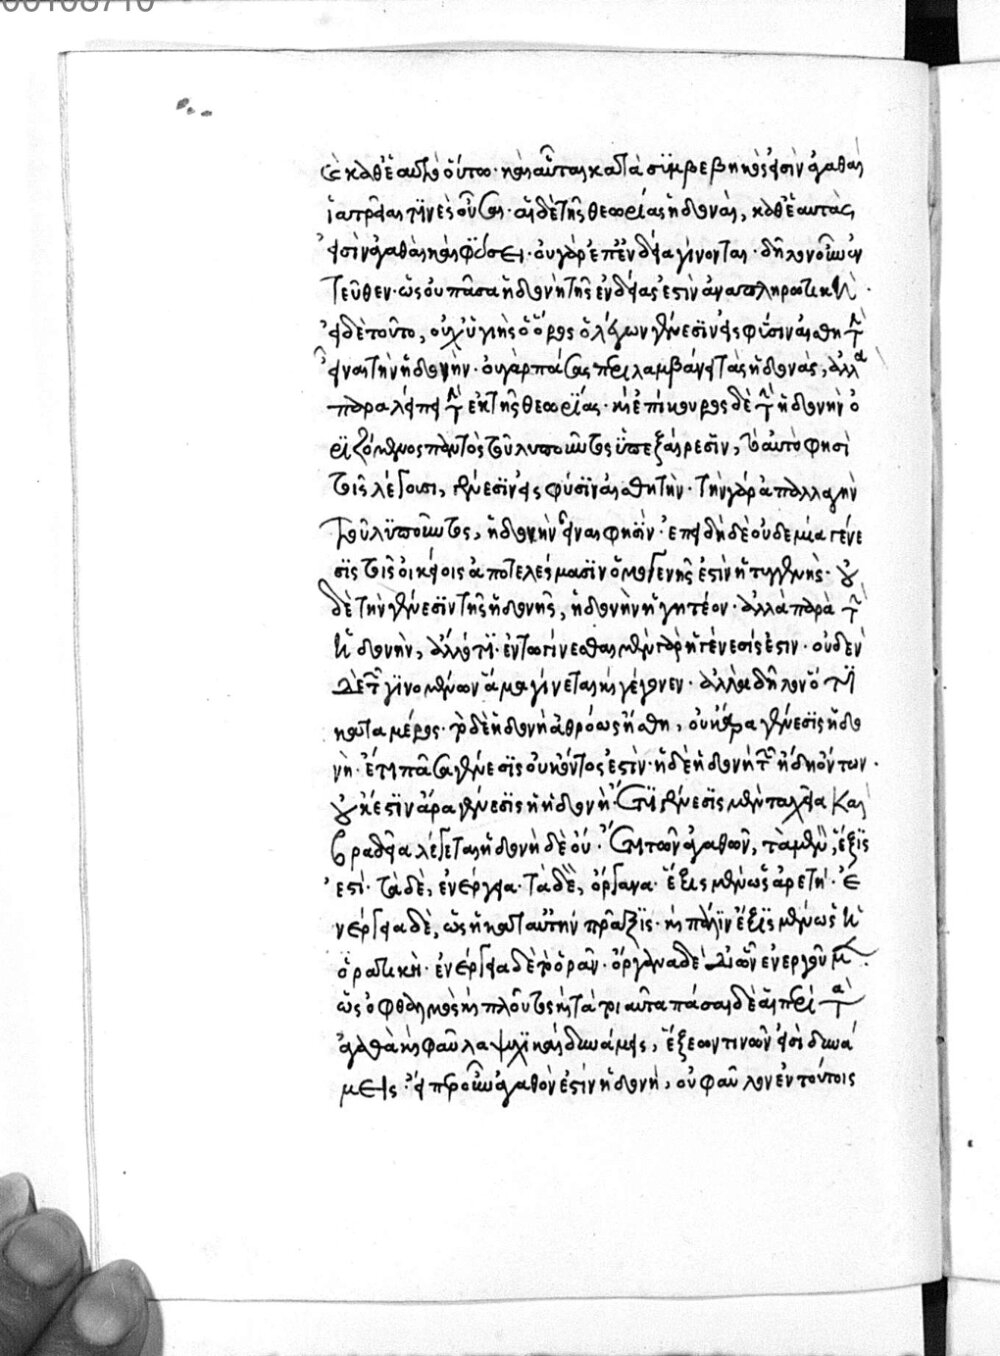 00108710
καθ' ἑαυτὸ οὕτω· καὶ αὗται κατὰ συμβεβηκός εἰσιν ἀγαθαὶ
ἰατρεῖαί τινες οὖσαι· αἱ δὲ τῆς θεωρίας ἡδοναὶ, καθ' ἑαυτάς
εἰσιν ἀγαθαὶ καὶ φύσει· οὐ γὰρ ἐπ' ἐνδείᾳ γίνονται· δῆλον οὖν
τεῦθεν· ὡς οὐ πᾶσα ἡδονὴ τῆς ἐνδείας ἐστὶν ἀναπλήρωσις
εἰ δὲ τοῦτο, οὐχ ὑγιὴς ὁ ὅρος ὁ λέγων γένεσιν εἰς φύσιν αἰσθητὴν
εἶναι τὴν ἡδονήν· οὐ γὰρ πάσας περιλαμβάνει τὰς ἡδονάς, ἀλλὰ
παραλείπει τὴν ἐκ τῆς θεωρίας· καὶ ἐπίκουρος δὲ τὴν ἡδονὴν ὁ
ριζόμενος παντὸς τοῦ λυποῦντος ὑπεξαίρεσιν, τὸ αὐτὸ φησὶ
τοῖς λέγουσι, γένεσιν εἰς φύσιν αἰσθητήν· τὴν γὰρ ἀπαλλαγὴν
τοῦ λυποῦντος, ἡδονὴν εἶναι φησίν· ἐπειδὴ δὲ οὐδεμία γένε
σις τοῖς οἰκείοις ἀποτελέσμασιν ὁμογενής ἐστιν
δὲ τὴν γένεσιν τῆς ἡδονῆς, ἡδονὴν ἡγητέον· ἀλλὰ παρὰ τὴν
ἡδονὴν, ἄλλό τι· ἐν τῶ γίνεσθαι μὲν γὰρ ἡ γένεσίς ἐστιν· οὐδὲν
δὲ τῶν γινομένων ἅμα γίνεται καὶ γέγονεν· ἀλλὰ δηλονότι
κατὰ μέρος· ἡ δὲ ἡδονὴ ἀθρόως οὐκ ἄρα γένεσις ἡδο
νή· ἔτι πᾶσα γένεσις οὐκ ὄντος ἐστίν· ἡ δὲ ἡδονὴ τῶν ἤδη ὄντων·
οὐκ ἔστιν ἄρα γένεσις ἡ ἡδονή· ἔτι γένεσις μὲν ταχεῖα καὶ
βραδεῖα λέγεται ἡδονὴ δὲ οὔ· ἔτι τῶν ἀγαθῶν, τὰ μὲν, ἕξις
ἐστί· τὰ δὲ, ἐνέργεια· τὰ δὲ, ὄργανα· ἕξις μὲν ὡς ἀρετή· ἐ
νέργεια δὲ, ὡς ἡ κατ' αὐτὴν πρᾶξις· καὶ πάλιν ἕξις μὲν ὡς ἡ
ὁρατική· ἐνέργεια δὲ τὸ ὁρᾶν· ὄργανα δὲ δι' ὧν ἐνεργοῦμεν
ὡς ὀφθαλμὸς καὶ πλοῦτος καὶ τὰ τοιαῦτα πᾶσαι δὲ αἱ περὶ τὰ
ἀγαθὰ καὶ φαῦλα ψυχικαὶ δυνάμεις, ἕξεων τινῶν εἰσὶ δυνά
μεις· εἴπερ οὖν ἀγαθὸν ἐστὶν ἡδονὴ, οὐ φαῦλον ἐν τούτοις